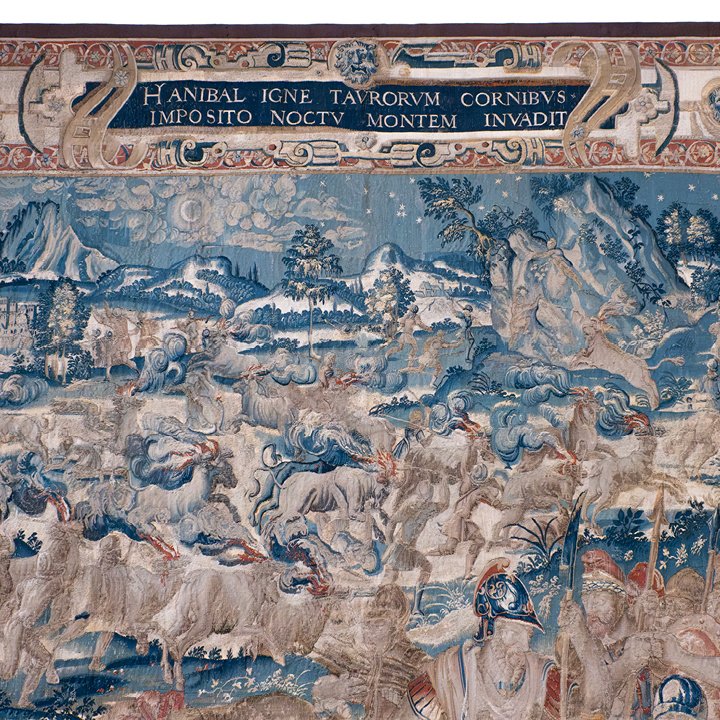 HANIBAL IGNE TAVRORVM CORNIBVS
IMPOSITO NOCTV MONTEM INVADIT